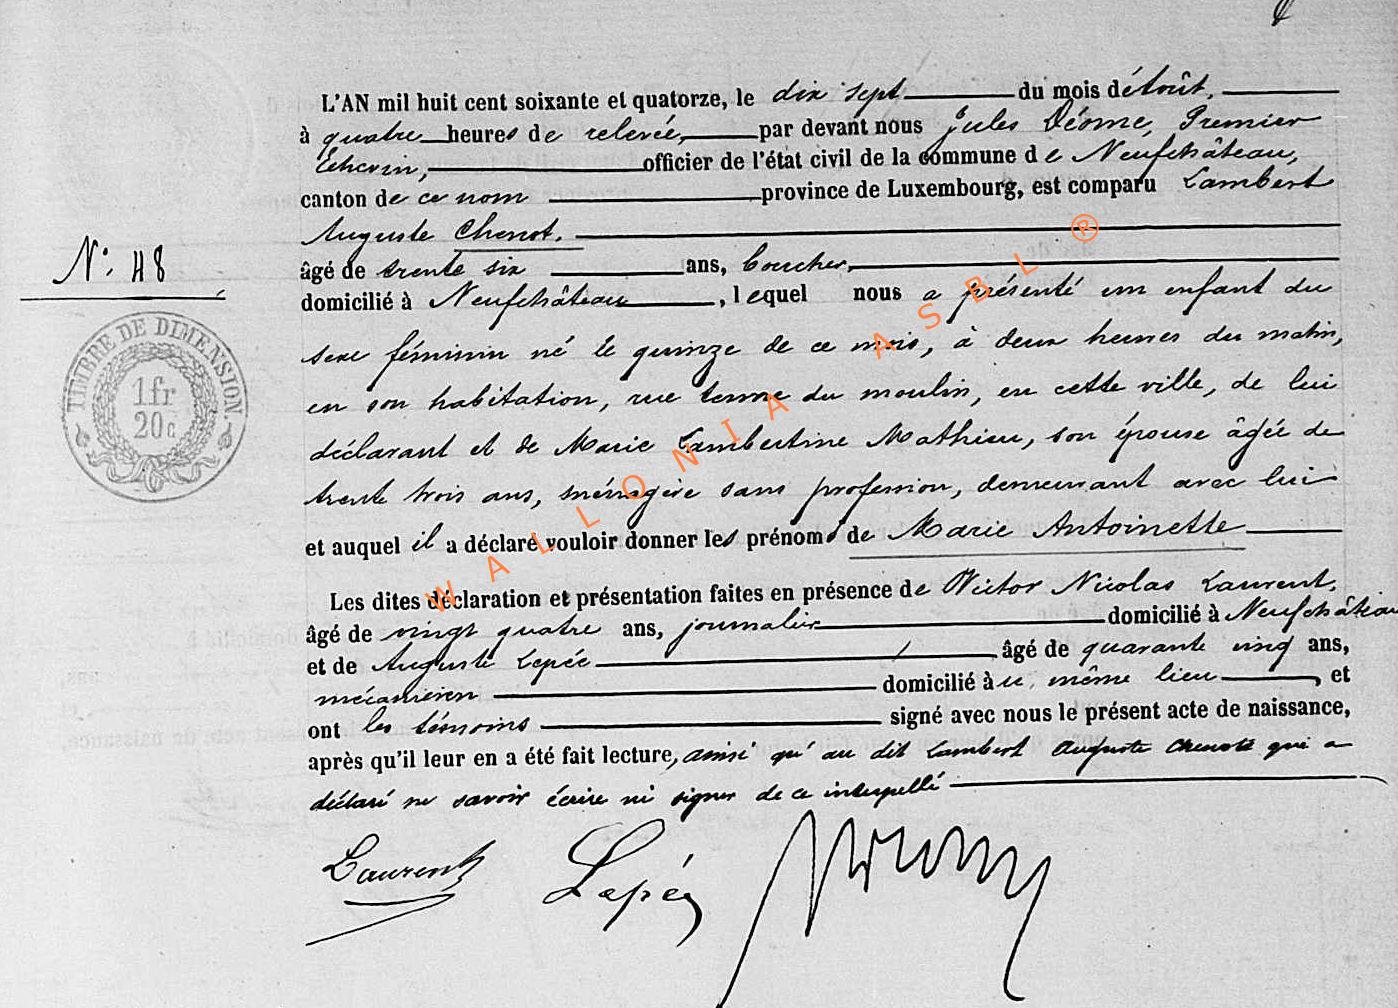 L'AN mil huit cent soixante et quatorze, le dix sept du mois d'Août,
à quatre heures de relevée, par devant nous Jules Déome, Premier
Echevin, officier de l'état civil de la commune de Neufchâteau,
canton de ce nom province de Luxembourg, est comparu Lambert
Auguste Chenot.
N°. 48
âgé de trente six ans, boucher,
domicilié à Neufchâteau, lequel nous a présenté un enfant du
sexe féminin né le quinze de ce mois, à deux heures du matin,
en son habitation, rue terme du moulin, en cette ville, de lui
déclarant et de Marie Lambertine Mathieu, son épouse âgée de
trente trois ans, ménagère sans profession, demeurant avec lui
et auquel il a déclaré vouloir donner les prénoms de Marie Antoinette
Les dites déclaration et présentation faites en présence de Victor Nicolas Laurent,
âgé de vingt quatre ans, journalier domicilié à Neufchâteau
et de Auguste Lepée âgé de quarante cinq ans,
mécanicien domicilié au même lieu, et
ont les témoins signé avec nous le présent acte de naissance,
après qu'il leur en a été fait lecture, ainsi qu'au dit Lambert Auguste Chenot qui a
déclaré ne savoir écrire ni signer de ce interpellé
Laurent Lepée
TIMBRE DE DIMENSION.
1fr
20c
WALLONIA ASBL ®